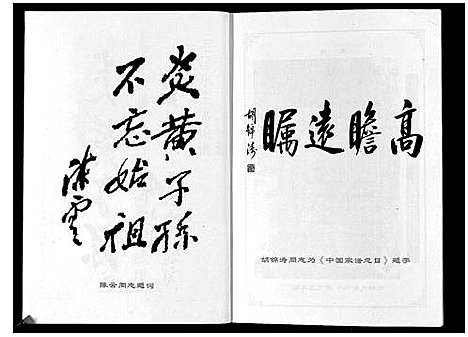 炎黄子孙
不忘始祖
陈云
陈云同志题词
高瞻遠瞩
胡锦涛
胡锦涛同志为《中国家谱总目》题字